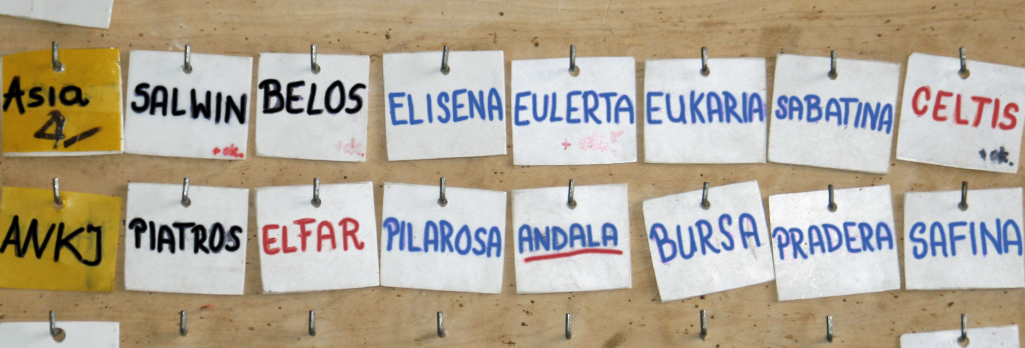 Asia SALWIN BELOS ELISENA EULERTA EUKARIA SABATINA CELTIS
4,- +ok. +ok. + ok. +ok.
ANKJ PIATROS ELFAR PILAROSA ANDALA BURSA PRADERA SAFINA